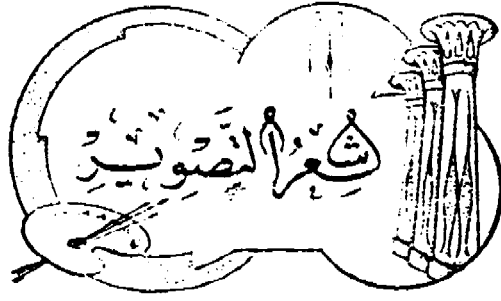 شِعرُ التَّصويرِ